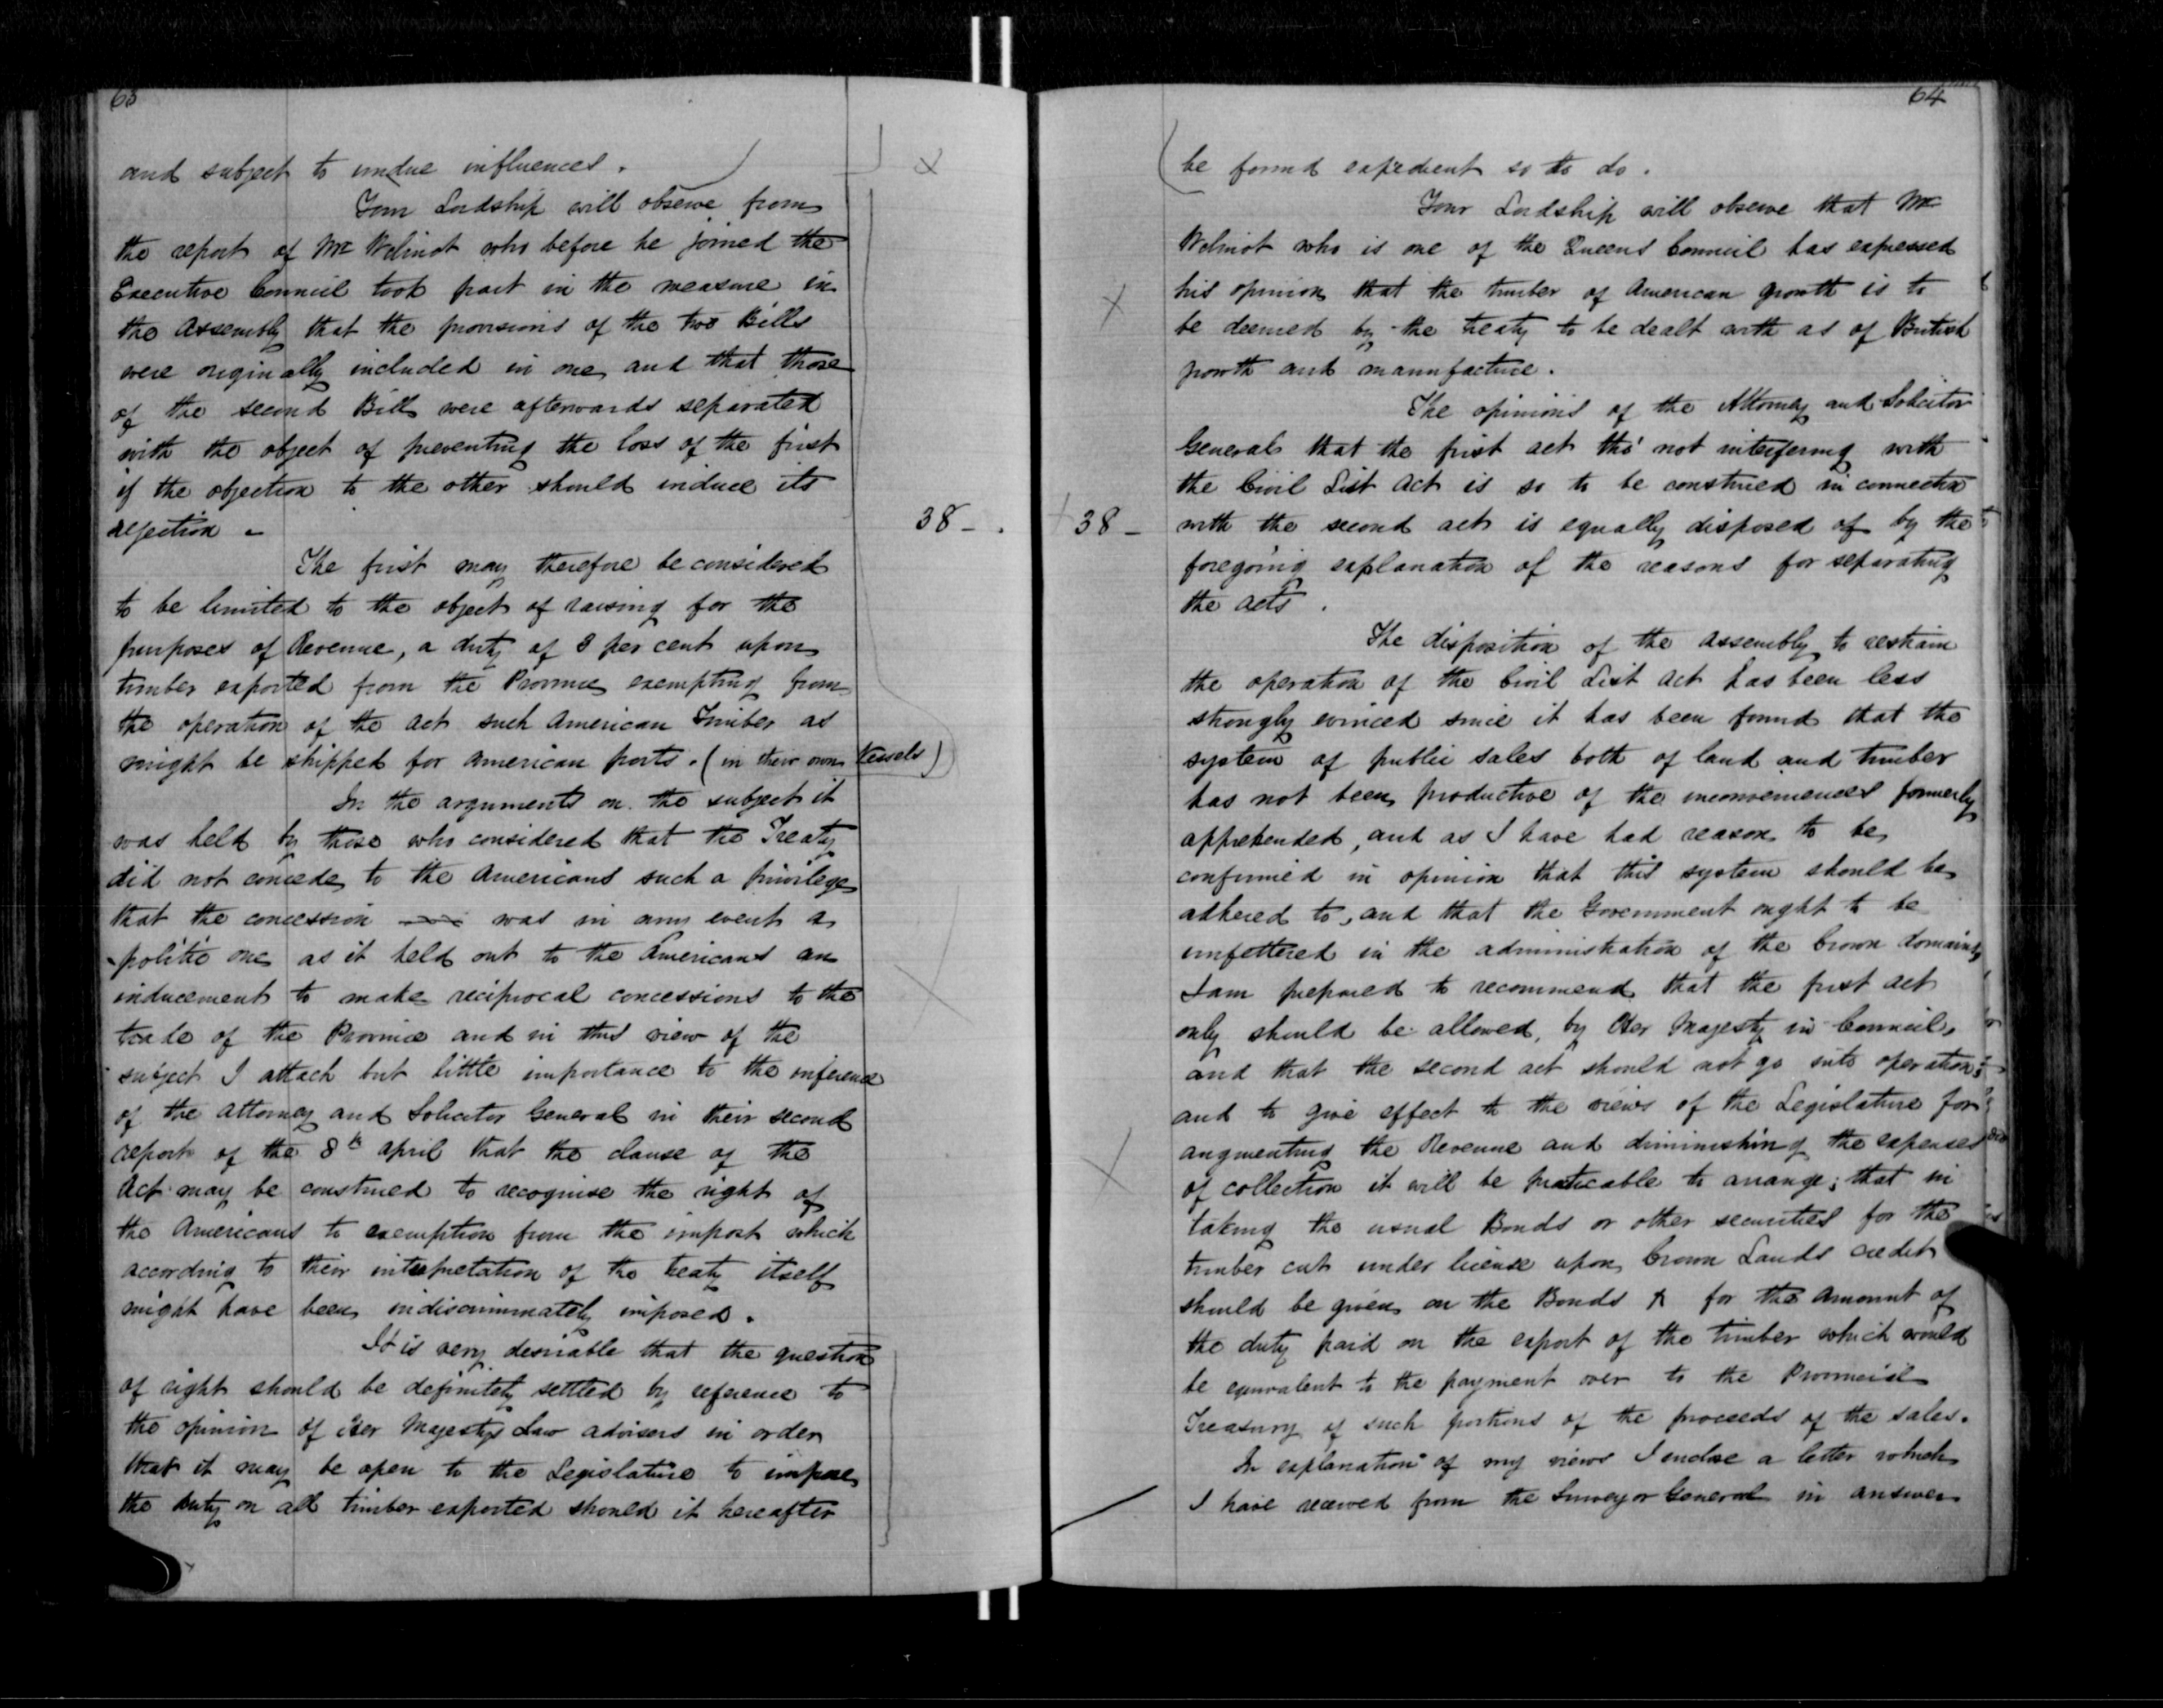 63
and subject to undue influences.
Your Lordship will observe from
the report of Mr Wilmot who before he joined the
Executive Council took part in the measure in
the Assembly that the provisions of the two Bills
were originally included in one and that those
of the second Bill were afterwards separated
with the object of preventing the loss of the first
if the objection to the other should induce its
rejection -
38 - .
The first may therefore be considered
to be limited to the object of raising for the
purposes of Revenue, a duty of 8 per cent upon
timber exported from the Province exempting from
the operation of the act such American Timber as
might be shipped for American ports. (in their own Vessels)
In the arguments on the subject it
was held by those who considered that the Treaty
did not concede to the Americans such a privilege
that the concession was in any event a
politic one as it held out to the Americans an
inducement to make reciprocal concessions to the
trade of the Province and in this view of the
subject I attach but little importance to the inference
of the Attorney and Solicitor General in their second
report of the 8th April that the clause of the
Act may be construed to recognise the right of
the Americans to exemption from the impost which
according to their interpretation of the treaty itself
might have been indiscriminately imposed.
It is very desirable that the question
of right should be definitely settled by reference to
the opinion of Her Majestys Law advisers in order
that it may be open to the Legislature to impose
the duty on all timber exported should it hereafter
64
be found expedient so to do.
Your Lordship will observe that Mr
Wilmot who is one of the Queens Council has expressed
his opinion that the timber of American growth is to
be deemed by the treaty to be dealt with as of British
growth and manufacture.
The opinions of the Attorney and Solicitor
General that the first act tho' not interfering with
the Civil List Act is so to be construed in connection
38 -
with the second act is equally disposed of by the
foregoing explanation of the reasons for separating
the acts.
The disposition of the Assembly to restrain
the operation of the Civil List Act has been less
strongly evinced since it has been found that the
system of public sales both of land and timber
has not been productive of the inconveniences formerly
apprehended, and as I have had reason to be
confirmed in opinion that this system should be
adhered to, and that the Government ought to be
unfettered in the administration of the Crown domains
I am prepared to recommend that the first act
only should be allowed, by Her Majesty in Council,
and that the second act should not go into operation;
and to give effect to the views of the Legislature for
augmenting the Revenue and diminishing the expenses
of collection it will be practicable to arrange; that in
taking the usual Bonds or other securities for the
timber cut under license upon Crown Lands credit
should be given on the Bonds for the amount of
the duty paid on the export of the timber which would
be equivalent to the payment over to the Provincial
Treasury of such portions of the proceeds of the sales.
In explanation of my views I enclose a letter which
I have received from the Surveyor General in answer